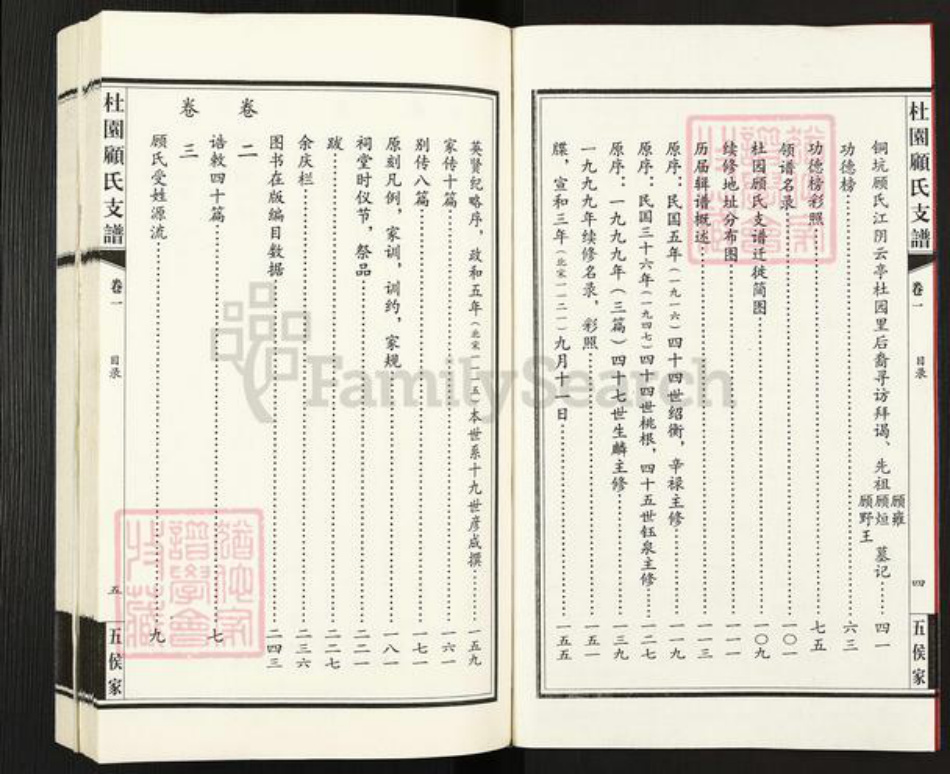 杜園顧氏支譜
卷一
目录
四
五侯家
铜坑顾氏江阴云亭杜园里后裔寻访拜谒、先祖顾雍顾烜顾野王墓记……四一
功德榜……六三
功德榜彩照……七五
领谱名录……一〇一
杜园顾氏支谱迁徙简图……一〇九
续修地址分布图……一一一
历届辑谱概述……一一三
原序：民国五年(一九一六)四十四世绍衡，辛禄主修……一一九
原序：民国三十六年(一九四七)四十四世桃根，四十五世钰泉主修……一二七
原序：一九九九年(三篇)四十七世生麟主修……一三九
一九九九年续修名录，彩照……一五一
牒，宣和三年(北宋一一二一)九月十一日……一五五
英贤纪略序，政和五年(北宋一一一五)本世系十九世彦成撰……一五九
家传十篇……一六一
别传八篇……一七一
原刻凡例，家训，训约，家规……一八一
祠堂时仪节，祭品……二二一
跋……二二七
余庆栏……二三六
图书在版编目数据……二四三
卷二
诰敕四十篇……七
卷三
顾氏受姓源流……九
杜園顧氏支譜
卷一
目录
五
五侯家
FamilySearch